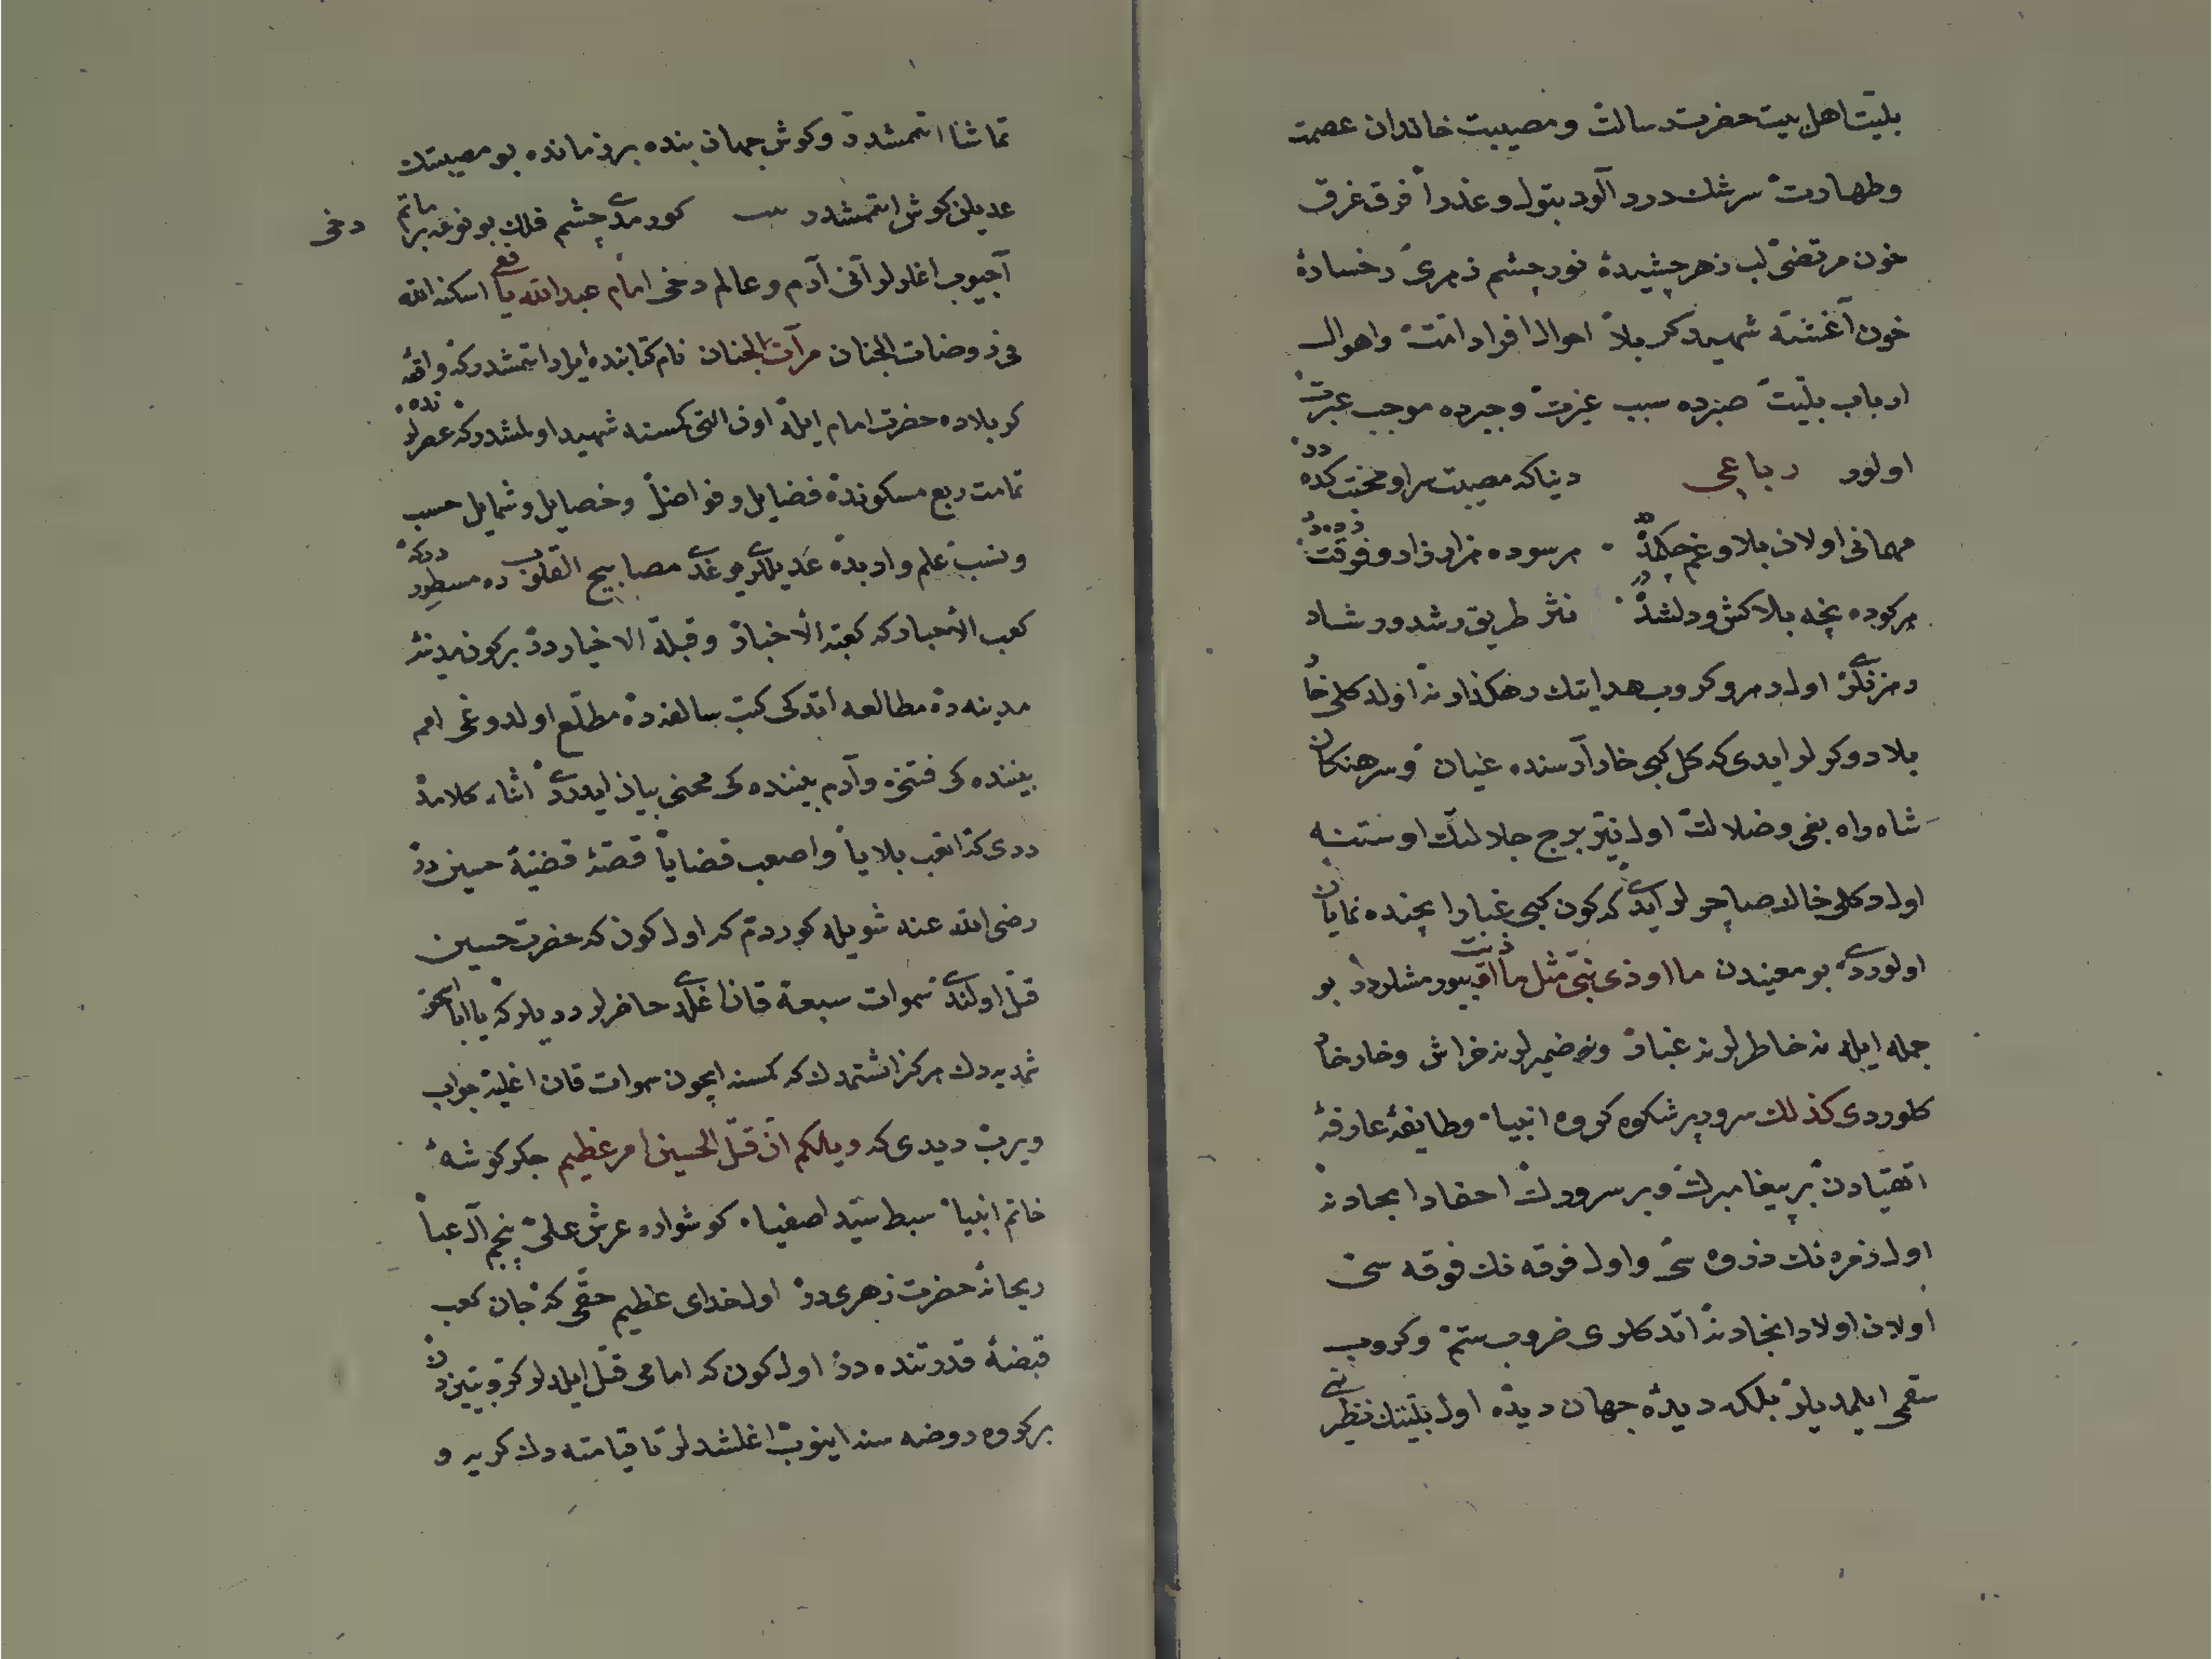 بلیت اهل بیت حضرت رسالت ومصیبت خاندان عصمت
وطهارت سرشك درد آلود بتول وعذرا فرق غرق
خون مرتضی لب زهر چشیدۀ نور چشم زهری رخسارۀ
خون آغشته شهید کربلا احوال افراد امت واهوال
ارباب بلیت صبرده سبب عزت وجبرده موجب عبرت
اولور رباعی دیناکه مصیبت سراو محنت کده در
مهمانی اولان بلا وغم هر سوده هزار زار و
هر کوده نیچه بلاکش ودلشده نثر طریق رشد ورشاد
اول کروب هدایتك اولد کلی
بلا دوکرلر ایدی که کل کبی خار آرسنده عیان وسرهنکان
شاه راه بغی وضلالت اول نیر برج جلالتك اوستنه
اول کلی خاك صاچرلر ایدی که کون کبی غبار ایچنده نمایان
اولوردی بو معنیدن ما اوذی نبی مثل ما اوذیت بیورمشلردر بو
جمله ایله نه خاطرلرنه غبار ونه ضمیرلرنه خراش وخارخار
کلوردی کذلك سرور پرشکوه کروه انبیا وطایفۀ عارفۀ
اتقیادن بر پیغامبرك وبر سرورك احفاد امجادنه
اول زمره نك سی واول فرقه نك فرقه سی
اولان اولاد انجادنه اتدکلری ضروب ستم وکروب
سقمی ایلمدیلر بلکه دیدۀ جهان دیده اول بلیتك نظیرنی
تماشا اتممشدر وکوش جهان بنده بر زمانده بو مصیبتك
عدیلن کوش اتممشدر بیت کورمدی چشم فلك بو نوعه بر ماتم دخی
آجیوب اغلرلر آنی آدم وعالم دخی امام عبدالله یافعی اسکنه الله
فی روضات الجنان مرآت الجنان نام کتابنده ایراد اتمشدر که واقعۀ
کربلاده حضرت امام ایله اون التی کمسنه شهید اولمشدر که عصرلرنده
تمامت ربع مسکونده فضایل وفواضل وخصایل وشمایل حسب
ونسب علم وادبده عدیللری یوغدی مصابیح القلوب ده مسطوردر که
کعب الاحبار که کعبة الاخبار وقبلة الاخیار در بر کون مدینه
مدینه ده مطالعه اتدکی کتب سالفه ده مطلع اولدوغی امم
بیننده کی فتنه وآدم بیننده کی محنی بیان ایدردی اثناء کلامده
دیدی که اتعب بلایا واصعب قضایا قصۀ قضیۀ حسین در
رضی الله عنه شویله کوردم که اول کون که حضرت حسین
قتل اولندی سموات سبعة قان اغلدی حاضرلر دیدیلر که یا ابا اسحق
شمدیه دك هرکز اشتمدك که کمسنه ایچون سموات قان اغلیه جواب
ویرب دیدی که ویلکم ان قتل الحسین امر عظیم جکر کوشۀ
خاتم انبیا سبط سید اصفیاء کوشوارۀ عرش علی پنجم آل عبا
ریحانۀ حضرت زهری در اول خدای عظیم حقی که جان کعب
قبضۀ قدرتنده در اول کون که امامی قتل ایلدلر کروبیندن
بر کروه روضه سنه اینوب اغلشدلر تا قیامته دك کریه و